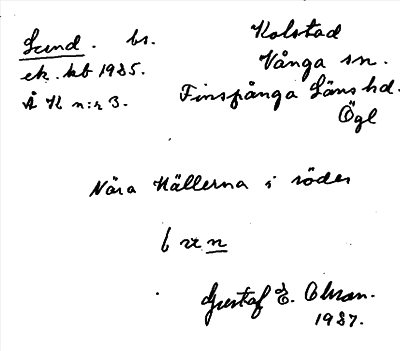 Lund. bs.
ek. kb 1935.
Å K n:r 3.
Kolstad
Vånga sn.
Finspånga Läns hd.
Ögl
Nära Källerna i söder
Gustaf E.
1937.